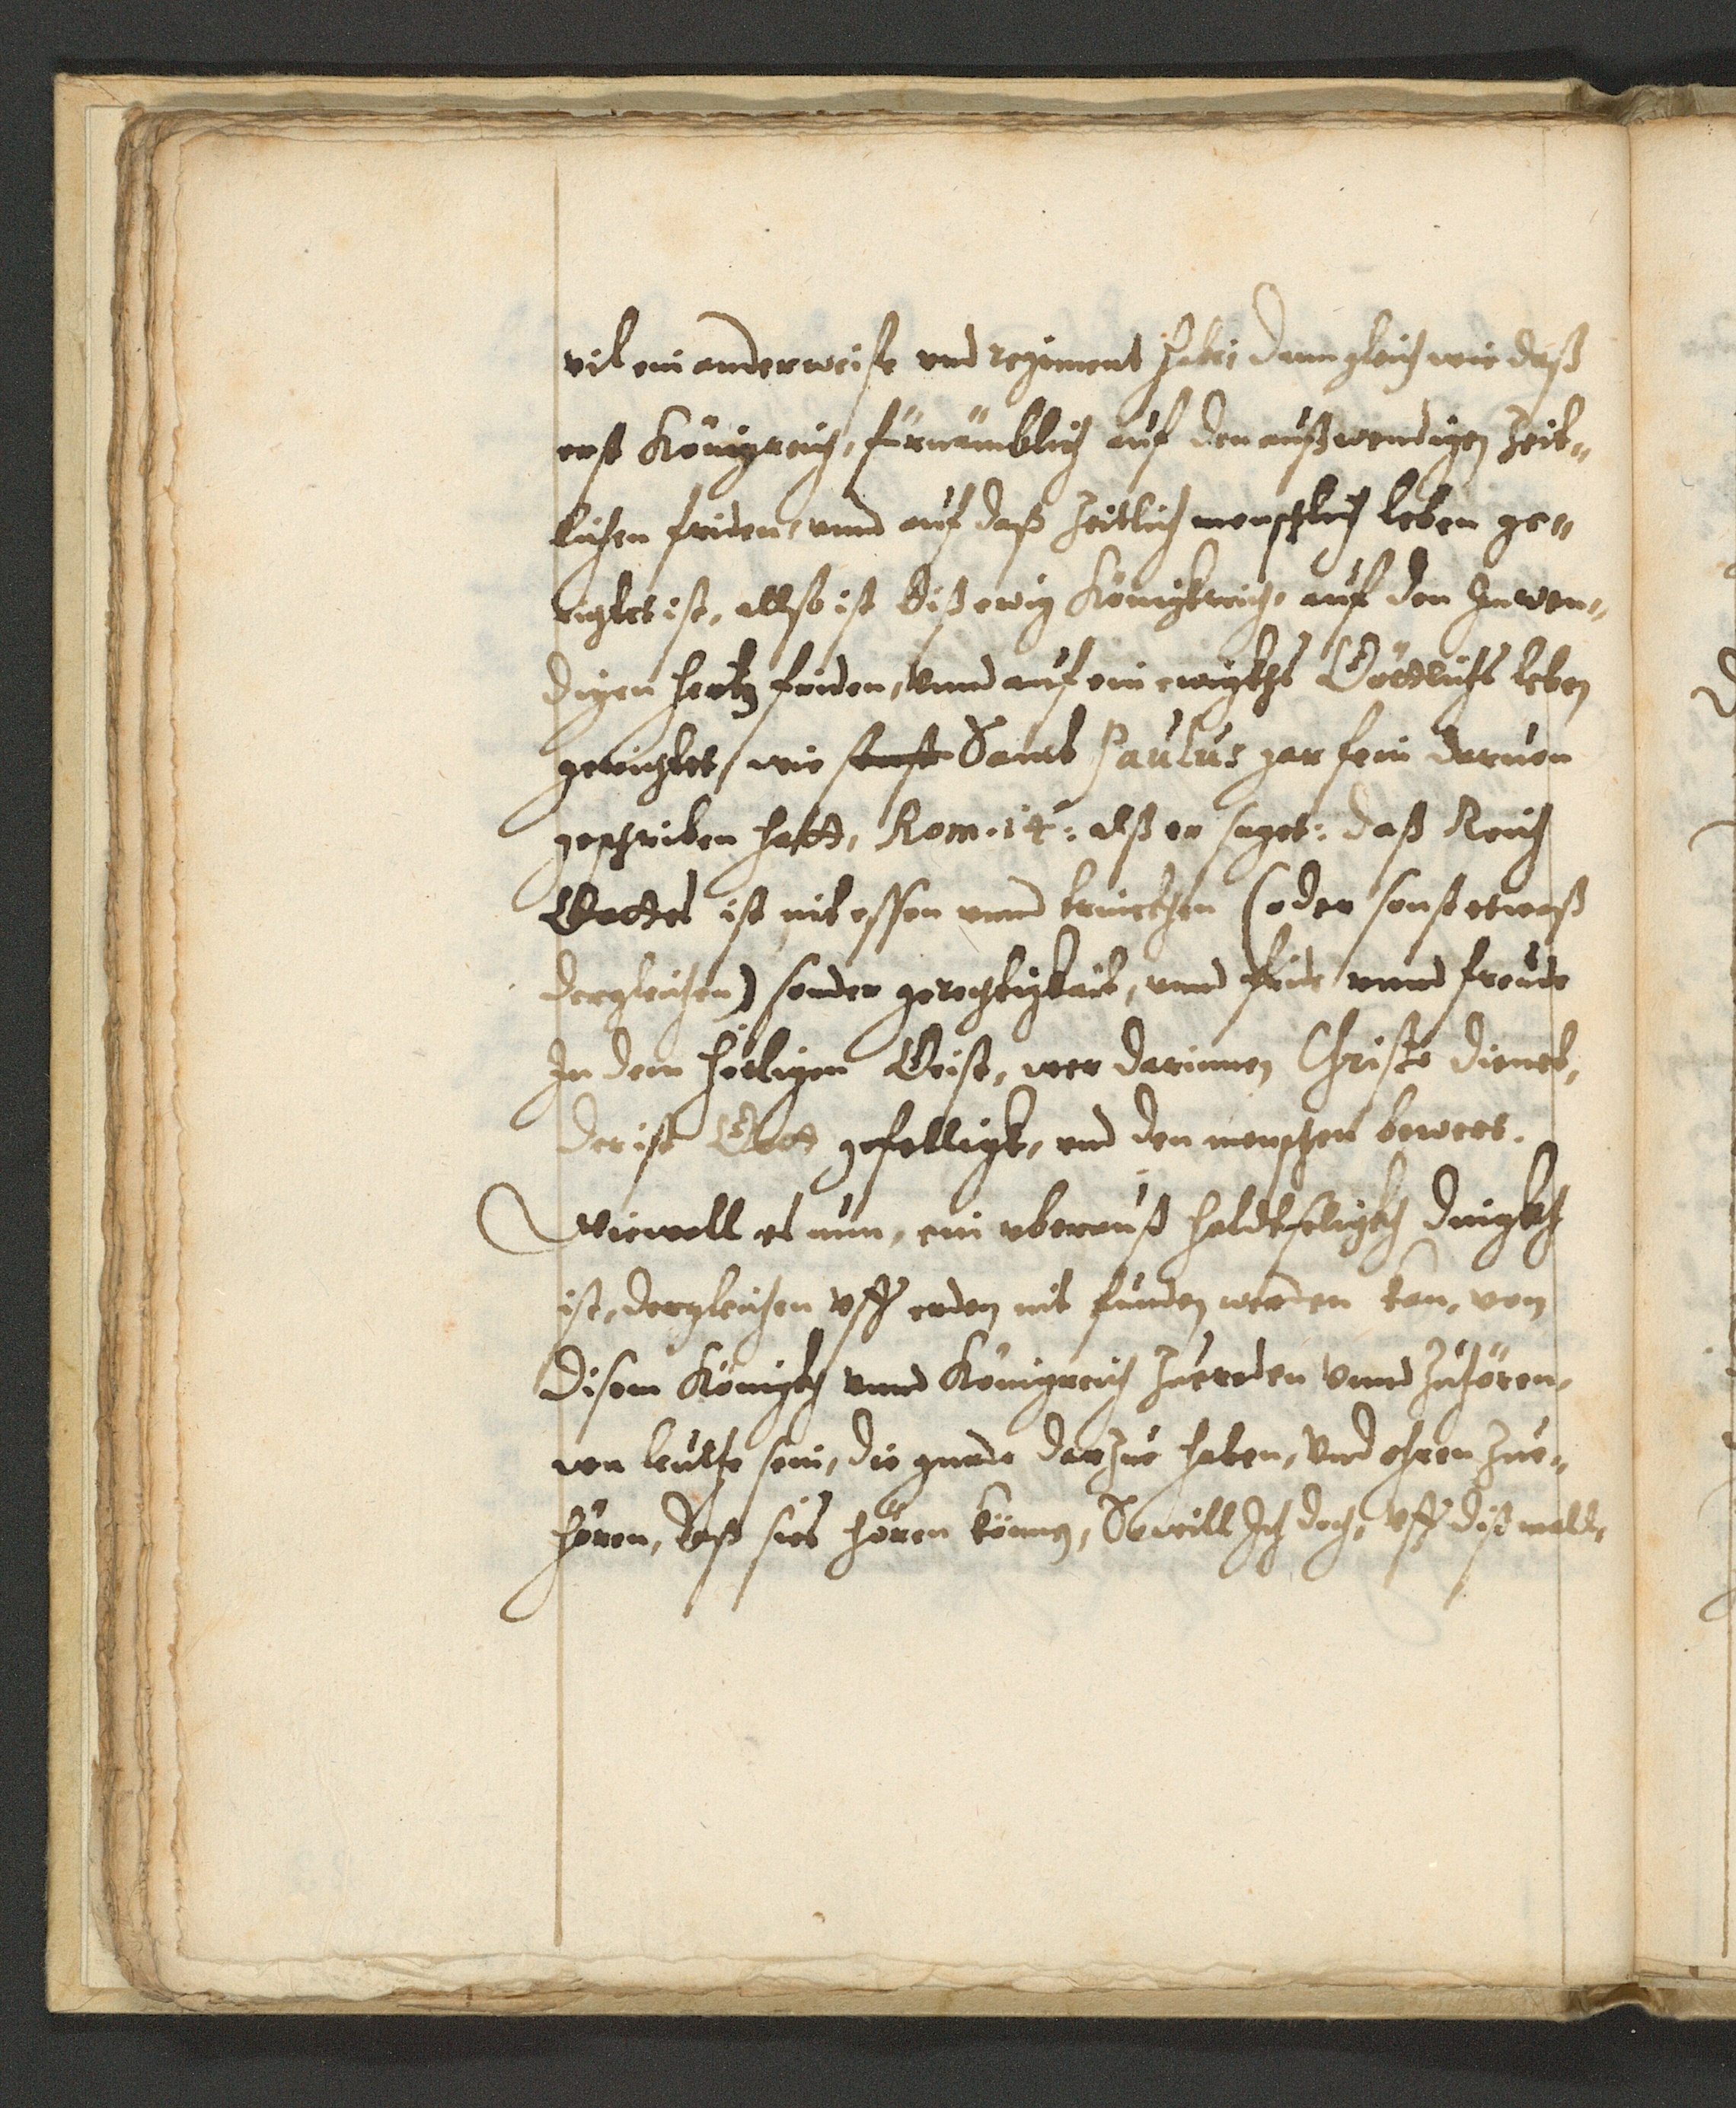 vil ein anderweise vnd regiment habe; dann gleich wie daß
erst Königreich, fürnämblich auf den außwendigen Zeit-
lichen friden, vnnd auf daß Zeitlich menschlich leben ge-
richtet ist, allso ist diß ewig Königkreich, auf den Inwen-
digen hertz friden, Vnnd auf ein ewigkhs Göttlichs leben
gerichtet, wie sonst Sanct Paulus gar fein daruon
geschriben hatt, Rom. 14: alß er saget: daß Reich
Gottes ist nit essen vnnd trinckhen (oder sonst etwaß
dergleichen) sonder gerechtigkait, vnnd fride vnnd freude
In dem heiligen Geist, wer darinnen Christo dienet,
der ist Gott gefelligk, vnd den menschen bewert.
Wiewoll es nun, ein vberauß holdtseligkh dingkh
ist, dergleichen vff erden nit funden werden kan, von
disem Königkh vnnd Königreich Zuereden Vnnd Zuhören,
wa leuthe sein, die gnade darzue haben, Vnd ohren Zue-
hören, daß sies hören können, So will Ich doch, vff diß mall,